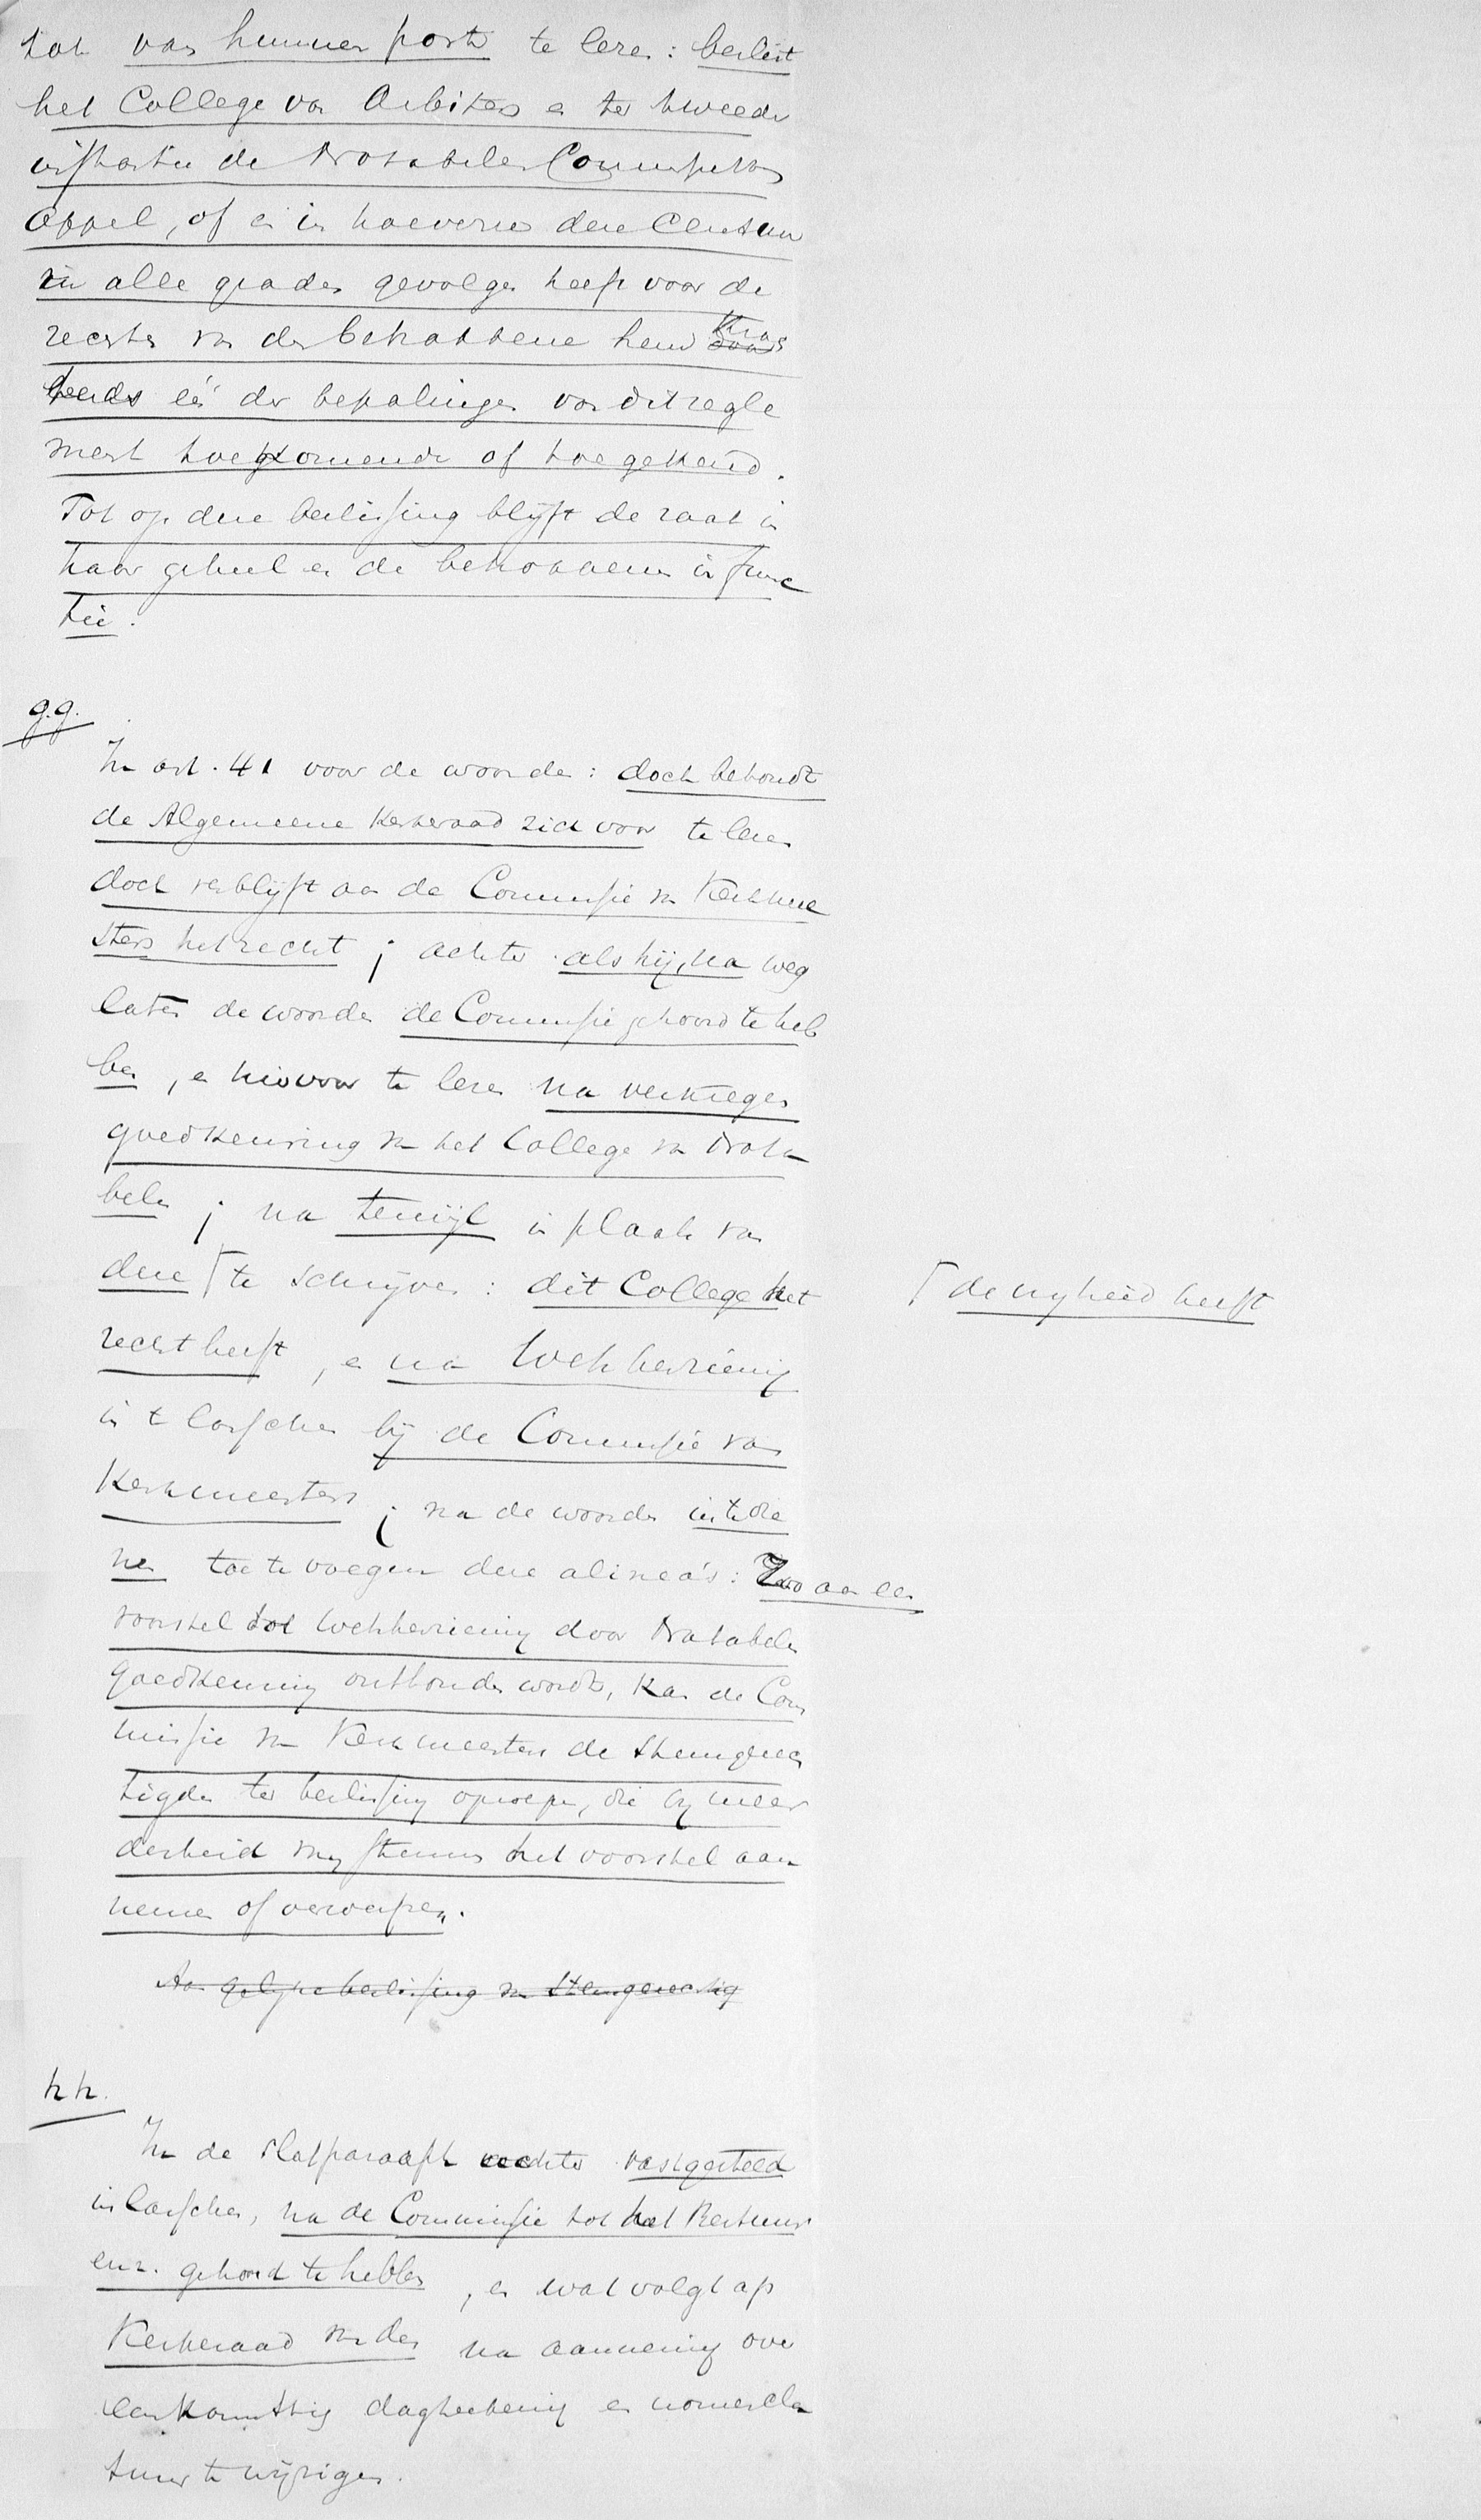 tot van hunner posts te lezen: beslist
het College van Arbiters en ter tweeder
instantie de Notabelen Commissie van
Appel, of en in hoeverre deze Censuur
in alle graden gevolgen heeft voor de
rechten van den betrokkene hem krach
tens één der bepalingen van dit regle
ment toekomende of toegekend.
Tot op deze beslissing blijft de raad in
haar geheel en de betrokkene in func
tie.
g.g.
In art. 41 voor de woorden: doch behoudt
de Algemeene Kerkeraad zich voor te lezen
doch verblijft aan de Commissie van Kerkmee
sters het recht; achter als hij, na weg
laten de woorden de Commissie gehoord te heb
ben, en hiervoor te lezen na verkregen
goedkeuring van het College van Nota
belen; na terwijl in plaats van
deze ⌈ te schrijven: dit College het
⌈ de vrijheid heeft
recht heeft, en na Wetsherziening
in te lasschen bij de Commissie van
Kerkmeesters; na de woorden in te die
nen toe te voegen deze alinea's: Zoo aan een
voorstel tot wetsherziening door Notabelen
goedkeuring onthouden wordt, kan de Com
missie van Kerkmeesters de stemgerech
tigden ter beslissing oproepen, die bij meer
derheid van stemmen het voorstel aan
nemen of verwerpen.
Aan gelijke beslissing van stemgerechtig
hh.
In de slotparaaph achter vastgesteld
in lasschen, na de Commissie tot het Bestuur
enz. gehoord te hebben, en wat volgt op
Kerkeraad van den na aanneming over
eenkomstig dagteekening en nomencla
tuur te wijzigen.